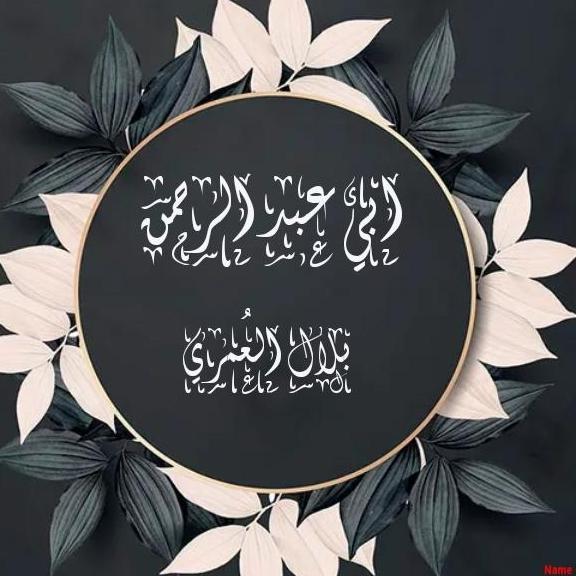 ابي عبد الرحمن
بلال العُمري
Name